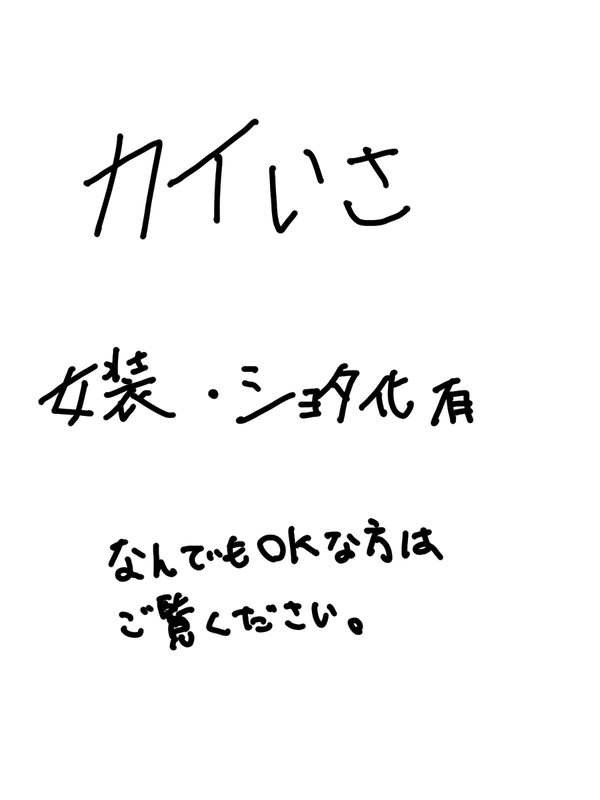 カイいさ
女装・ショタ化有
なんでもOKな方は
ご覧ください。